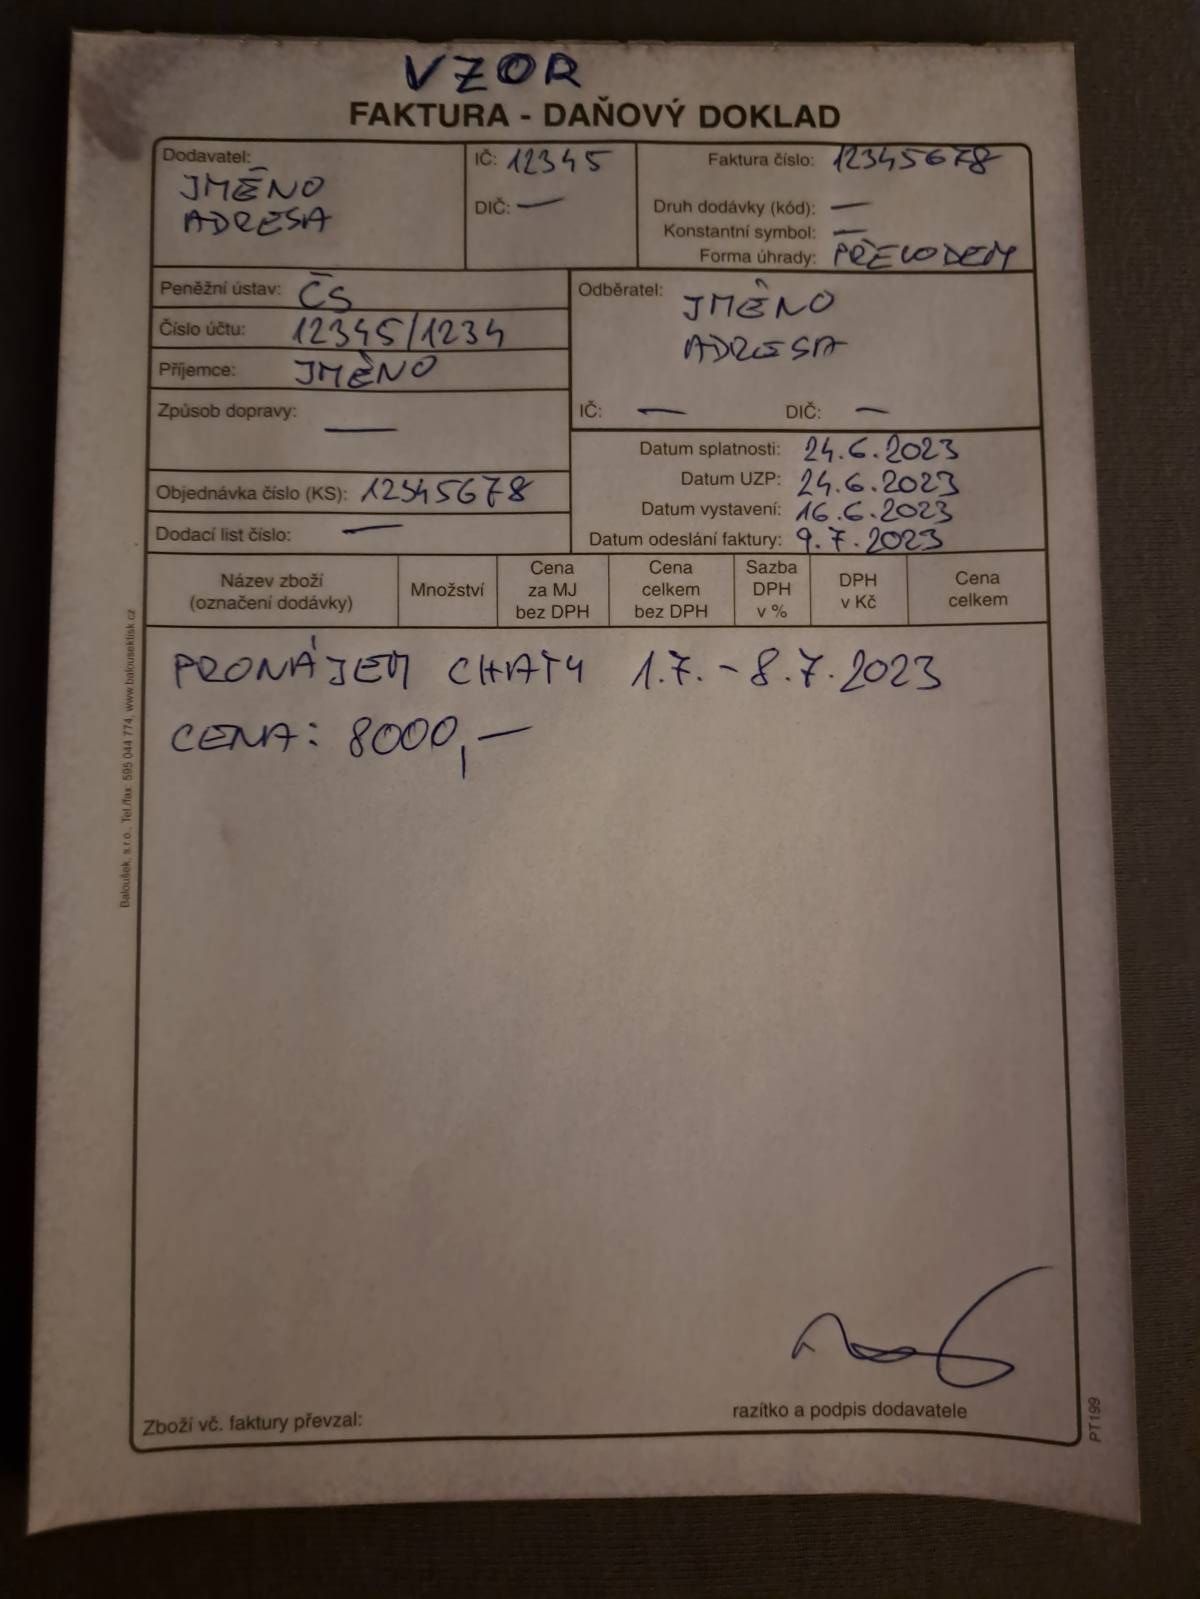 VZOR
FAKTURA - DAŇOVÝ DOKLAD
Dodavatel:
JMÉNO
ADRESA
IČ: 12345
DIČ: —
Faktura číslo: 12345678
Druh dodávky (kód): —
Konstantní symbol: —
Forma úhrady: PŘEVODEM
Peněžní ústav: ČS
Číslo účtu: 12345/1234
Příjemce: JMÉNO
Způsob dopravy: —
Objednávka číslo (KS): 12345678
Dodací list číslo: —
Odběratel: JMÉNO
ADRESA
IČ: — DIČ: —
Datum splatnosti: 24.6.2023
Datum UZP: 24.6.2023
Datum vystavení: 16.6.2023
Datum odeslání faktury: 9.7.2023
Název zboží
(označení dodávky)
Množství
Cena
za MJ
bez DPH
Cena
celkem
bez DPH
Sazba
DPH
v %
DPH
v Kč
Cena
celkem
PRONÁJEM CHATY 1.7.-8.7.2023
CENA: 8000,—
Zboží vč. faktury převzal:
razítko a podpis dodavatele
Baloušek, s.r.o., Tel./fax: 595 044 774, www.balousektisk.cz
PT199